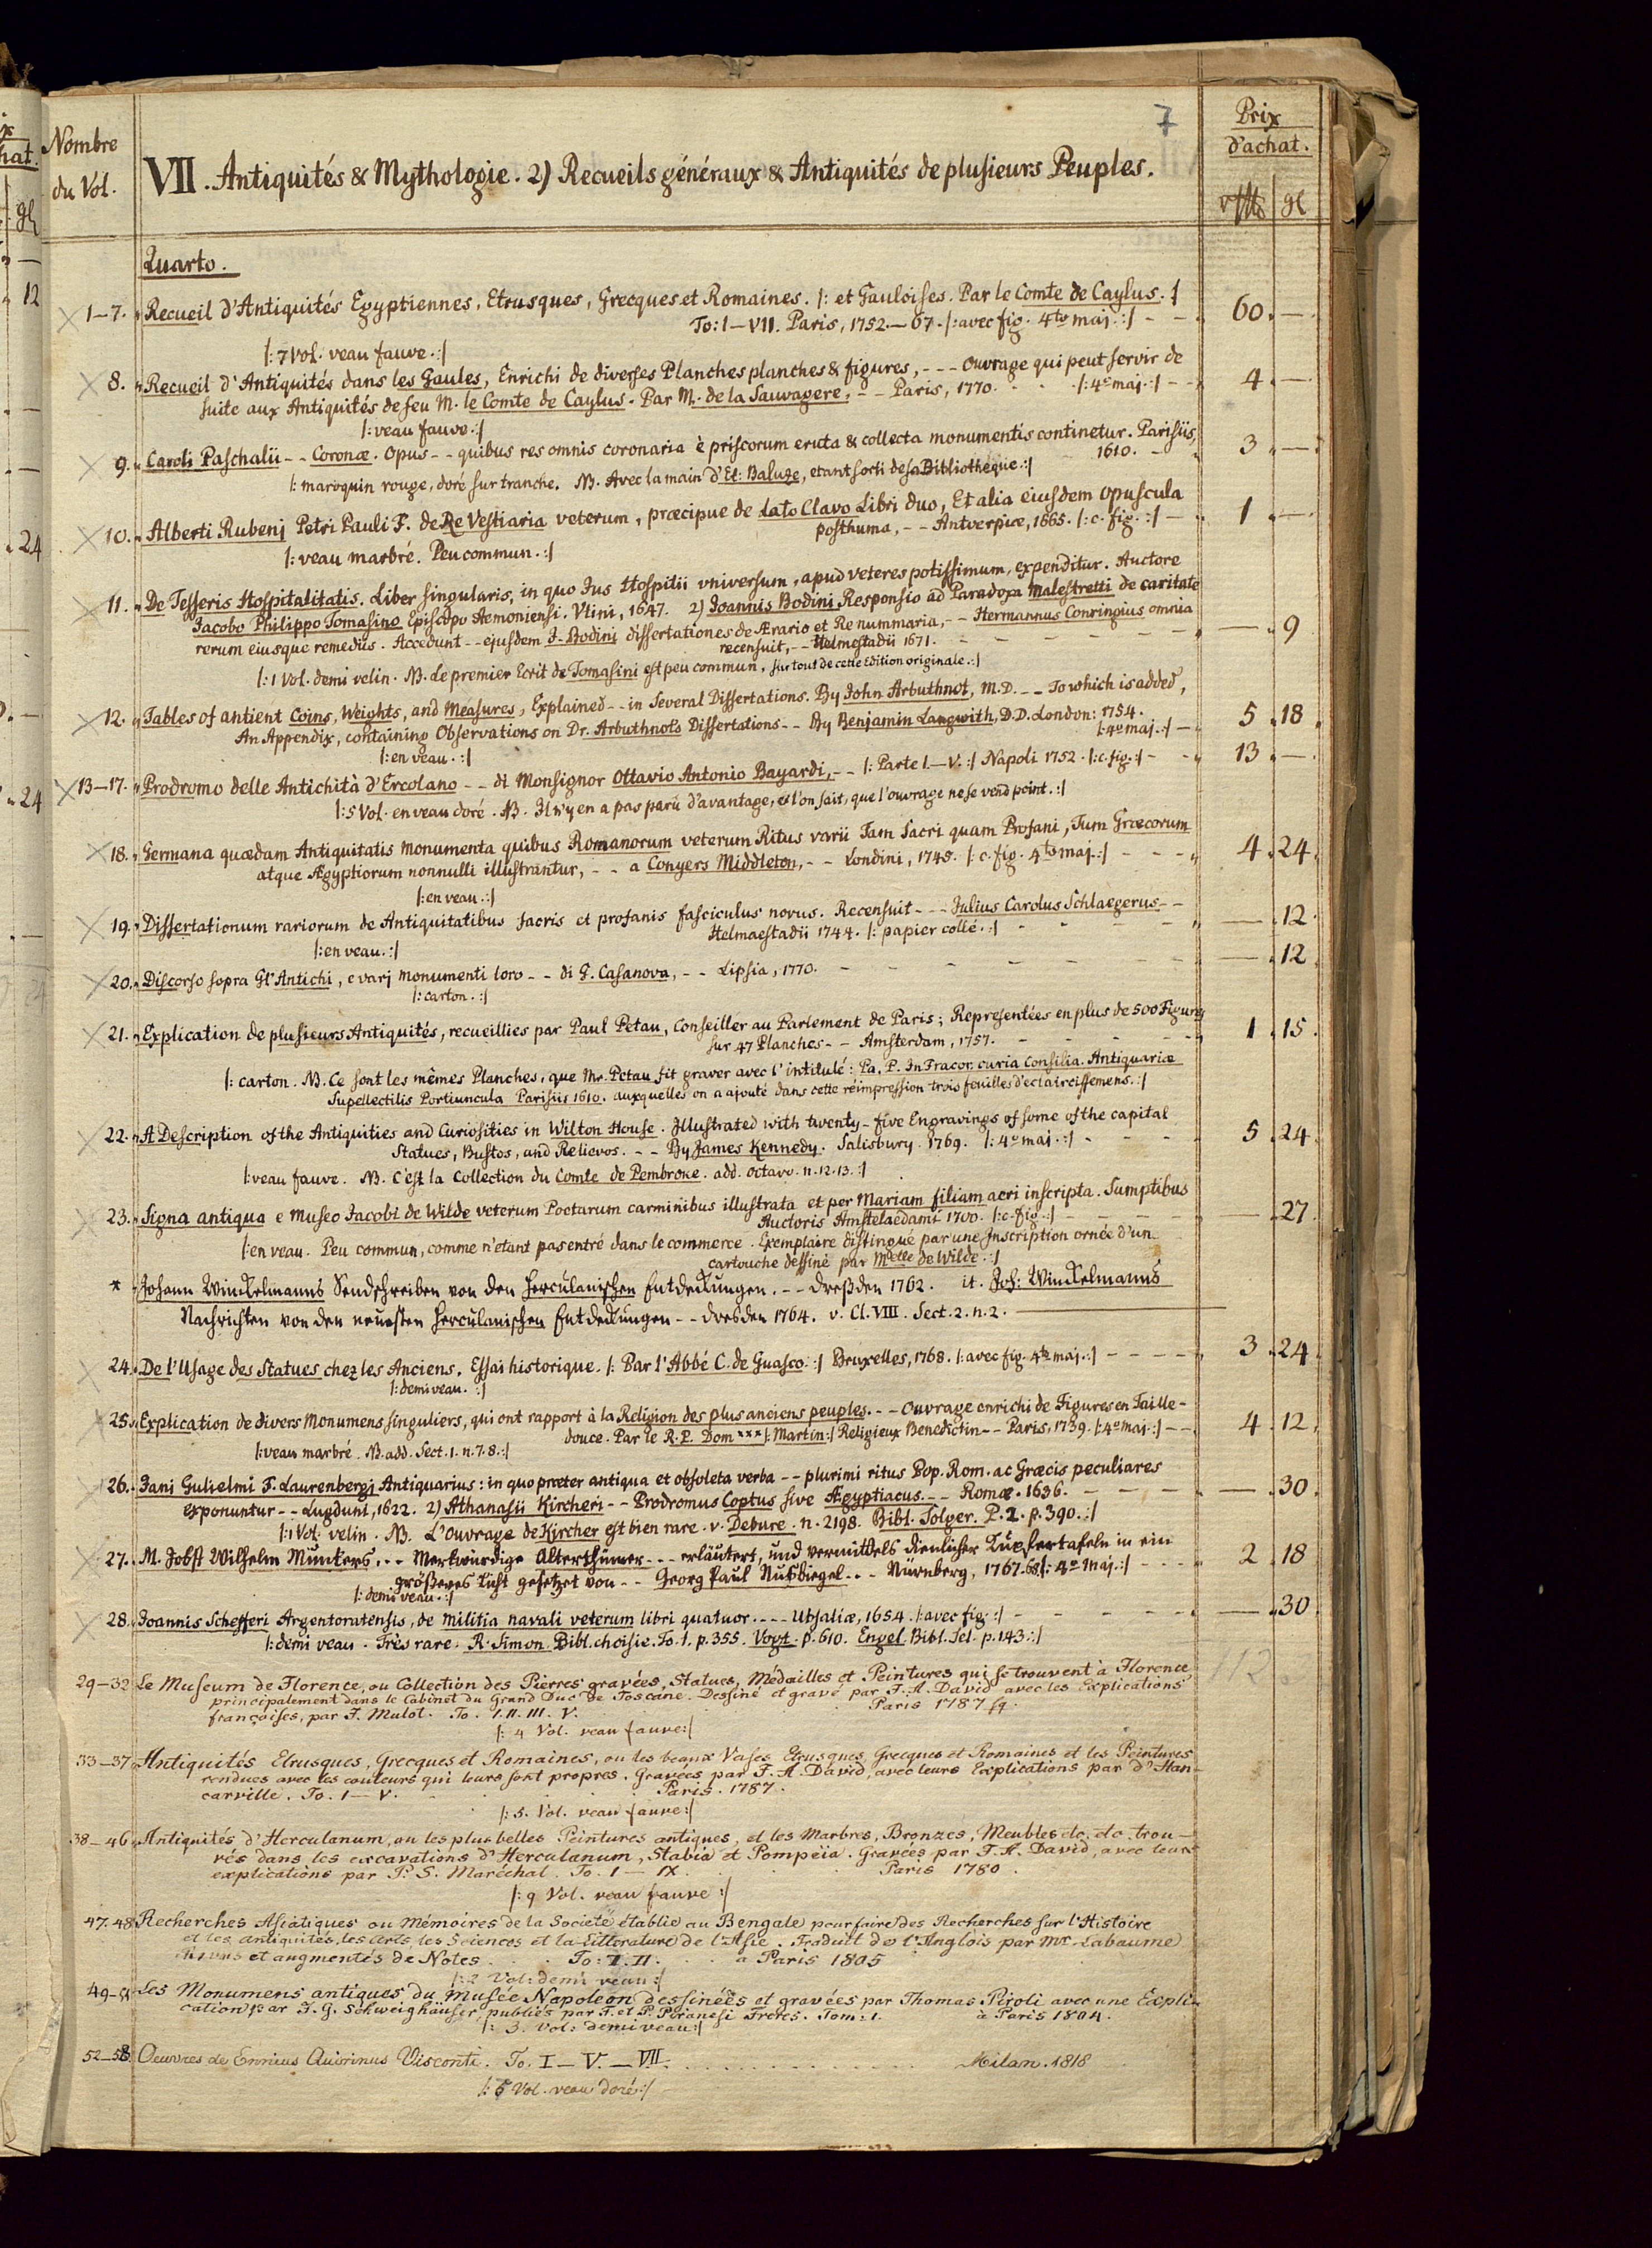 7
Nombre
du Vol.
VII. Antiquités & Mythologie. 2) Recueils généraux & Antiquités de plusieurs Peuples.
Prix
d'achat.
gl
Quarto.
1–7. Recueil d'Antiquités Egyptiennes, Etrusques, Grecques et Romaines. |: et Gauloises. Par le Comte de Caylus. :|
To: I–VII. Paris, 1752.–67. |: avec fig. 4to maj. :| - - 60. —
|: 7 Vol. veau fauve. :|
8. Recueil d'Antiquités dans les Gaules, Enrichi de diverses Planches planches & figures, - - - Ouvrage qui peut servir de
suite aux Antiquités de feu M. le Comte de Caylus. Par M. de la Sauvagere, - - Paris, 1770. |: 4° maj. :| - - 4 —
|: veau fauve. :|
9. Caroli Paschalii - - Coronæ. Opus - - quibus res omnis coronaria è priscorum eruta & collecta monumentis continetur. Parisiis,
1610. - 3 —
|: maroquin rouge, doré sur tranche. NB. Avec la main d'Et: Baluze, etant sorti de sa Bibliotheque. :|
10. Alberti Rubenj Petri Pauli F. de Re Vestiaria veterum, præcipue de Lato Clavo Libri duo, Et alia eiusdem Opuscula
posthuma, - - Antverpiæ, 1665. |: c. fig. :| — 1 —
|: veau marbré. Peu commun. :|
11. De Tesseris Hospitalitatis. Liber singularis, in quo Jus Hospitii vniversum, apud veteres potissimum, expenditur. Auctore
Jacobo Philippo Tomasino Episcopo Aemoniensi. Vtini, 1647. 2) Joannis Bodini Responsio ad Paradoxa Malestretti de caritate
rerum eiusque remediis. Accedunt - - ejusdem J. Bodini dissertationes de Ærario et Re nummaria, - - Hermannus Conringius omnia
recensuit, - - Helmestadii 1671. - - - - — 9
|: 1 Vol. demi velin. NB. Le premier Ecrit de Tomasini est peu commun, sur tout de cette Edition originale. :|
12. Tables of antient Coins, Weights, and Measures, Explained - - in Several Dissertations. By John Arbuthnot, M.D. - - To which is added,
An Appendix, containing Observations on Dr. Arbuthnots Dissertations - - By Benjamin Langwith, D.D. London: 1754.
|: 4° maj. :| — 5. 18.
|: en veau. :|
13–17. Prodromo delle Antichità d'Ercolano - - di Monsignor Ottavio Antonio Bayardi, - - |: Parte I.–V. :| Napoli 1752. |: c. fig. :| - - 13. —
|: 5 Vol. en veau doré. NB. Il n'y en a pas parû d'avantage, et l'on sait, que l'ouvrage ne se vend point. :|
18. Germana quædam Antiquitatis monumenta quibus Romanorum veterum Ritus varii Tam Sacri quam Profani, Tum Græcorum
atque Ægyptiorum nonnulli illustrantur, - - a Conyers Middleton, - - Londini, 1745. |: c. fig. 4to maj. :| - - - 4. 24.
|: en veau. :|
19. Dissertationum rariorum de Antiquitatibus sacris et profanis fasciculus novus. Recensuit - - - Julius Carolus Schlaegerus - -
Helmaestadii 1744. |: papier collé. :| - - - — 12.
|: en veau. :|
20. Discorso sopra Gl'Antichi, e varj monumenti loro - - di G. Casanova, - - Lipsia, 1770. - - - — 12.
|: carton. :|
21. Explication de plusieurs Antiquités, recueillies par Paul Petau, Conseiller au Parlement de Paris; Representées en plus de 500 Figures
sur 47 Planches - - Amsterdam, 1757. - - - 1. 15.
|: carton. NB. Ce sont les mêmes Planches, que Mr. Petau fit graver avec l'intitulé: Pa. P. In Francor. curia Consilia. Antiquariæ
Supellectilis Portiuncula Parisiis 1610. auxquelles on a ajouté dans cette réimpression trois feuilles d'eclaircissemens. :|
22. A Description of the Antiquities and Curiosities in Wilton House. Illustrated with twenty-five Engravings of some of the capital
Statues, Bustos, and Relievos. - - By James Kennedy. Salisbury. 1769. |: 4° maj. :| - - - 5. 24.
|: veau fauve. NB. C'est la Collection du Comte de Pembroke. add. octavo. n. 12. 13. :|
23. Signa antiqua e Museo Jacobi de Wilde veterum Poetarum carminibus illustrata et per Mariam filiam aeri inscripta. Sumptibus
Auctoris Amstelaedami 1700. |: c. fig. :| - - - — 27.
|: en veau. Peu commun, comme n'etant pas entré dans le commerce. Exemplaire distingué par une Inscription ornée d'un
cartouche dessiné par Melle de Wilde. :|
* Johann Winckelmanns Sendschreiben von den Herculanischen Entdeckungen. - - Dreßden 1762. it. Joh: Winckelmanns
Nachrichten von den neuesten Herculanischen Entdeckungen - - Dresden 1764. v. Cl. VIII. Sect. 2. n. 2.
24. De l'Usage des Statues chez les Anciens. Essai historique. |: Par l'Abbé C. de Guasco. :| Bruxelles, 1768. |: avec fig. 4to maj. :| - - - - 3. 24.
|: demi veau. :|
25. Explication de divers Monumens singuliers, qui ont rapport à la Religion des plus anciens peuples. - - Ouvrage enrichi de Figures en Taille-
douce. Par le R.P. Dom *** |: Martin :| Religieux Benedictin - - Paris, 1739. |: 4° maj. :| - - 4. 12.
|: veau marbré. NB. add. Sect. 1. n. 7. 8. :|
26. Jani Gulielmi F. Laurenbergj Antiquarius: in quo præter antiqua et obsoleta verba - - plurimi ritus Pop. Rom. ac Græcis peculiares
exponuntur - - Lugduni, 1622. 2) Athanasii Kircheri - - Prodromus Coptus sive Ægyptiacus. - - Romæ. 1636. - - - — 30.
|: 1 Vol. velin. NB. L'Ouvrage de Kircher est bien rare. v. Debure. n. 2198. Bibl. Solger. P. 2. p. 390. :|
27. M. Jobst Wilhelm Münkers. - - Merkwürdige Alterthümer - - - erläutert, und vermittels dienlicher Kupfertafeln in ein
größeres Licht gesetzet von - - Georg Paul Nußbiegel. - - Nürnberg, 1767. 68. |: 4° maj. :| - - - 2. 18.
|: demi veau. :|
28. Joannis Schefferi Argentoratensis, de militia navali veterum libri quatuor. - - - - Ubsaliæ, 1654. |: avec fig. :| - - - — 30.
|: demi veau. Très rare. R. Simon. Bibl. choisie. To. 1. p. 355. Vogt. p. 610. Engel. Bibl. Sel. p. 143. :|
29–32 Le Museum de Florence, ou Collection des Pierres gravées, Statues, Médailles et Peintures qui se trouvent à Florence,
principalement dans le Cabinet du Grand Duc de Toscane. Dessiné et gravé par F. A. David avec les Explications
françoises, par F. Mulot. To. I. II. III. V. Paris 1787 sq.
|: 4 Vol. veau fauve :|
112
33–37 Antiquités Etrusques, Grecques et Romaines, ou les beaux Vases Etrusques, Grecques et Romaines et les Peintures
rendues avec les couleurs qui leurs sont propres. Gravées par F. A. David, avec leurs Explications par d'Han-
carville. To. I – V. Paris. 1787.
|: 5. Vol. veau fauve :|
38–46 Antiquités d'Herculanum, ou les plus belles Peintures antiques, et les Marbres, Bronzes, Meubles etc. etc. trou-
vés dans les excavations d'Herculanum, Stabia et Pompeia. Gravées par F. A. David, avec leurs
explications par P. S. Maréchal. To. I – IX. Paris 1780.
|: 9 Vol. veau fauve :|
47. 48 Recherches Asiatiques ou Mémoires de la Societé établie au Bengale pour faire des Recherches sur l'Histoire
et les antiquités, les Arts, les Sciences et la Litterature de l'Asie. Traduit de l'Anglois par Mr. Labaume
et augmentés de Notes. To: I. II. à Paris 1805
|: 2 Vol: demi veau :|
49–51 Les Monumens antiques du Musée Napoleon dessinéés et gravées par Thomas Piroli avec une Expli-
cation par J. G. Schweighäuser, publiés par F. et P. Piranesi Freres. Tom: 1. à Paris 1804.
|: 3. Vol: demi veau :|
52–58 Oeuvres de Ennius Quirinus Visconti. To. I – V. – VII. Milan. 1818
|: Vol. veau doré :|